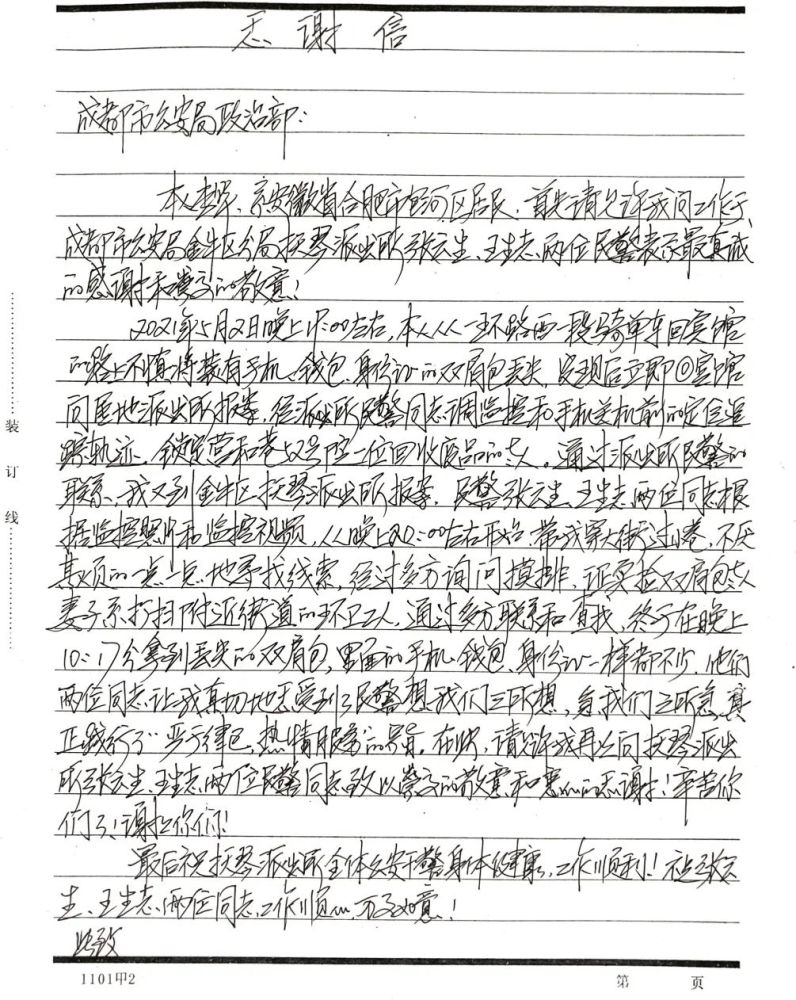 感谢信
成都市公安局政治部:
本人 系安徽省合肥市包河区居民,首先请允许我向工作于
成都市公安局金牛区分局抚琴派出所张云生、王生志两位民警表示最真诚
的感谢和崇高的敬意!
2021年5月2日晚上 :00左右,本人从一环路西一段骑单车回宾馆
的路上不慎将装有手机、钱包、身份证的双肩包丢失,发现后立即回宾馆
向属地派出所报案,经派出所民警同志调监控和手机关机前的定位追
踪轨迹,锁定营和巷52号院一位回收废品的老人。通过派出所民警的
联系,我又到金牛区抚琴派出所报案,民警张云生、王生志两位同志根
据监控照片和监控视频,从晚上20:00左右开始,带我穿大街过小巷,不厌
其烦的一点一点地寻找线索,经过多方询问摸排,证实捡双肩包老人
妻子系打扫附近街道的环卫工人,通过多方联系和查找,终于在晚上
10:17分拿到丢失的双肩包,里面的手机、钱包、身份证一样都不少,他们
两位同志让我真切地感受到了民警想我们之所想,急我们之所急,真
正践行了"严于律己,热情服务的 。在此,请允许我再次向抚琴派出
所张云生、王生志两位民警同志致以崇高的敬意和衷心的感谢!辛苦你
们了!谢谢你们!
最后祝抚琴派出所全体公安干警身体健康,工作顺利!祝张云
生、王生志两位同志,工作顺心,万事如意!
此致
装订线
1101甲2
第 页